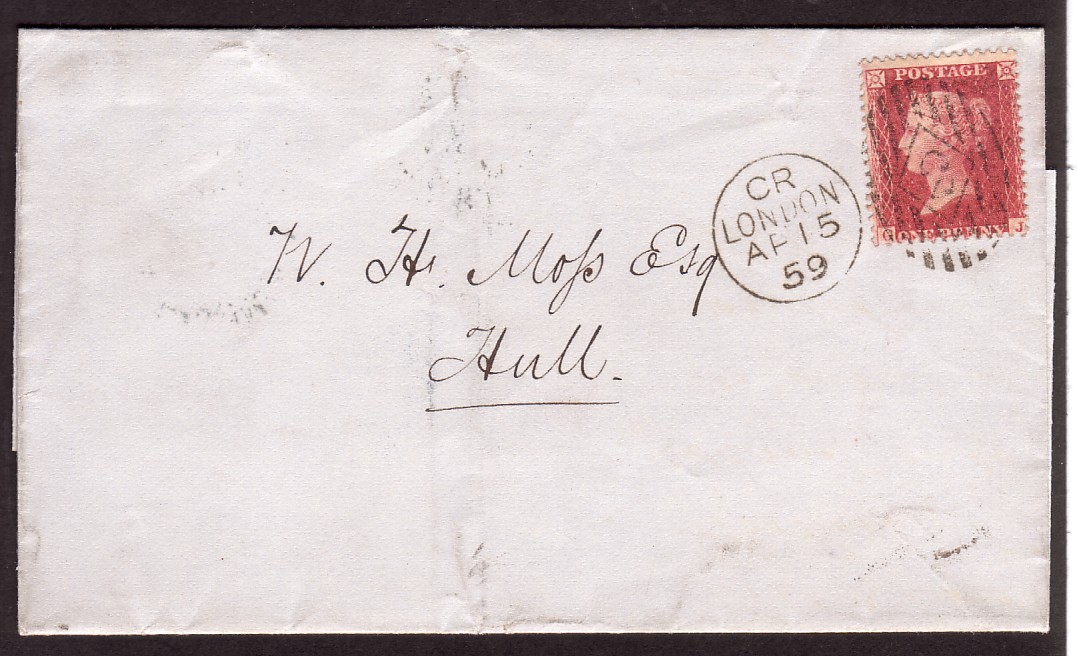 POSTAGE
G ONE PENNY J
CR
LONDON
AP 15
59
W. H. Moſs Esq
Hull.